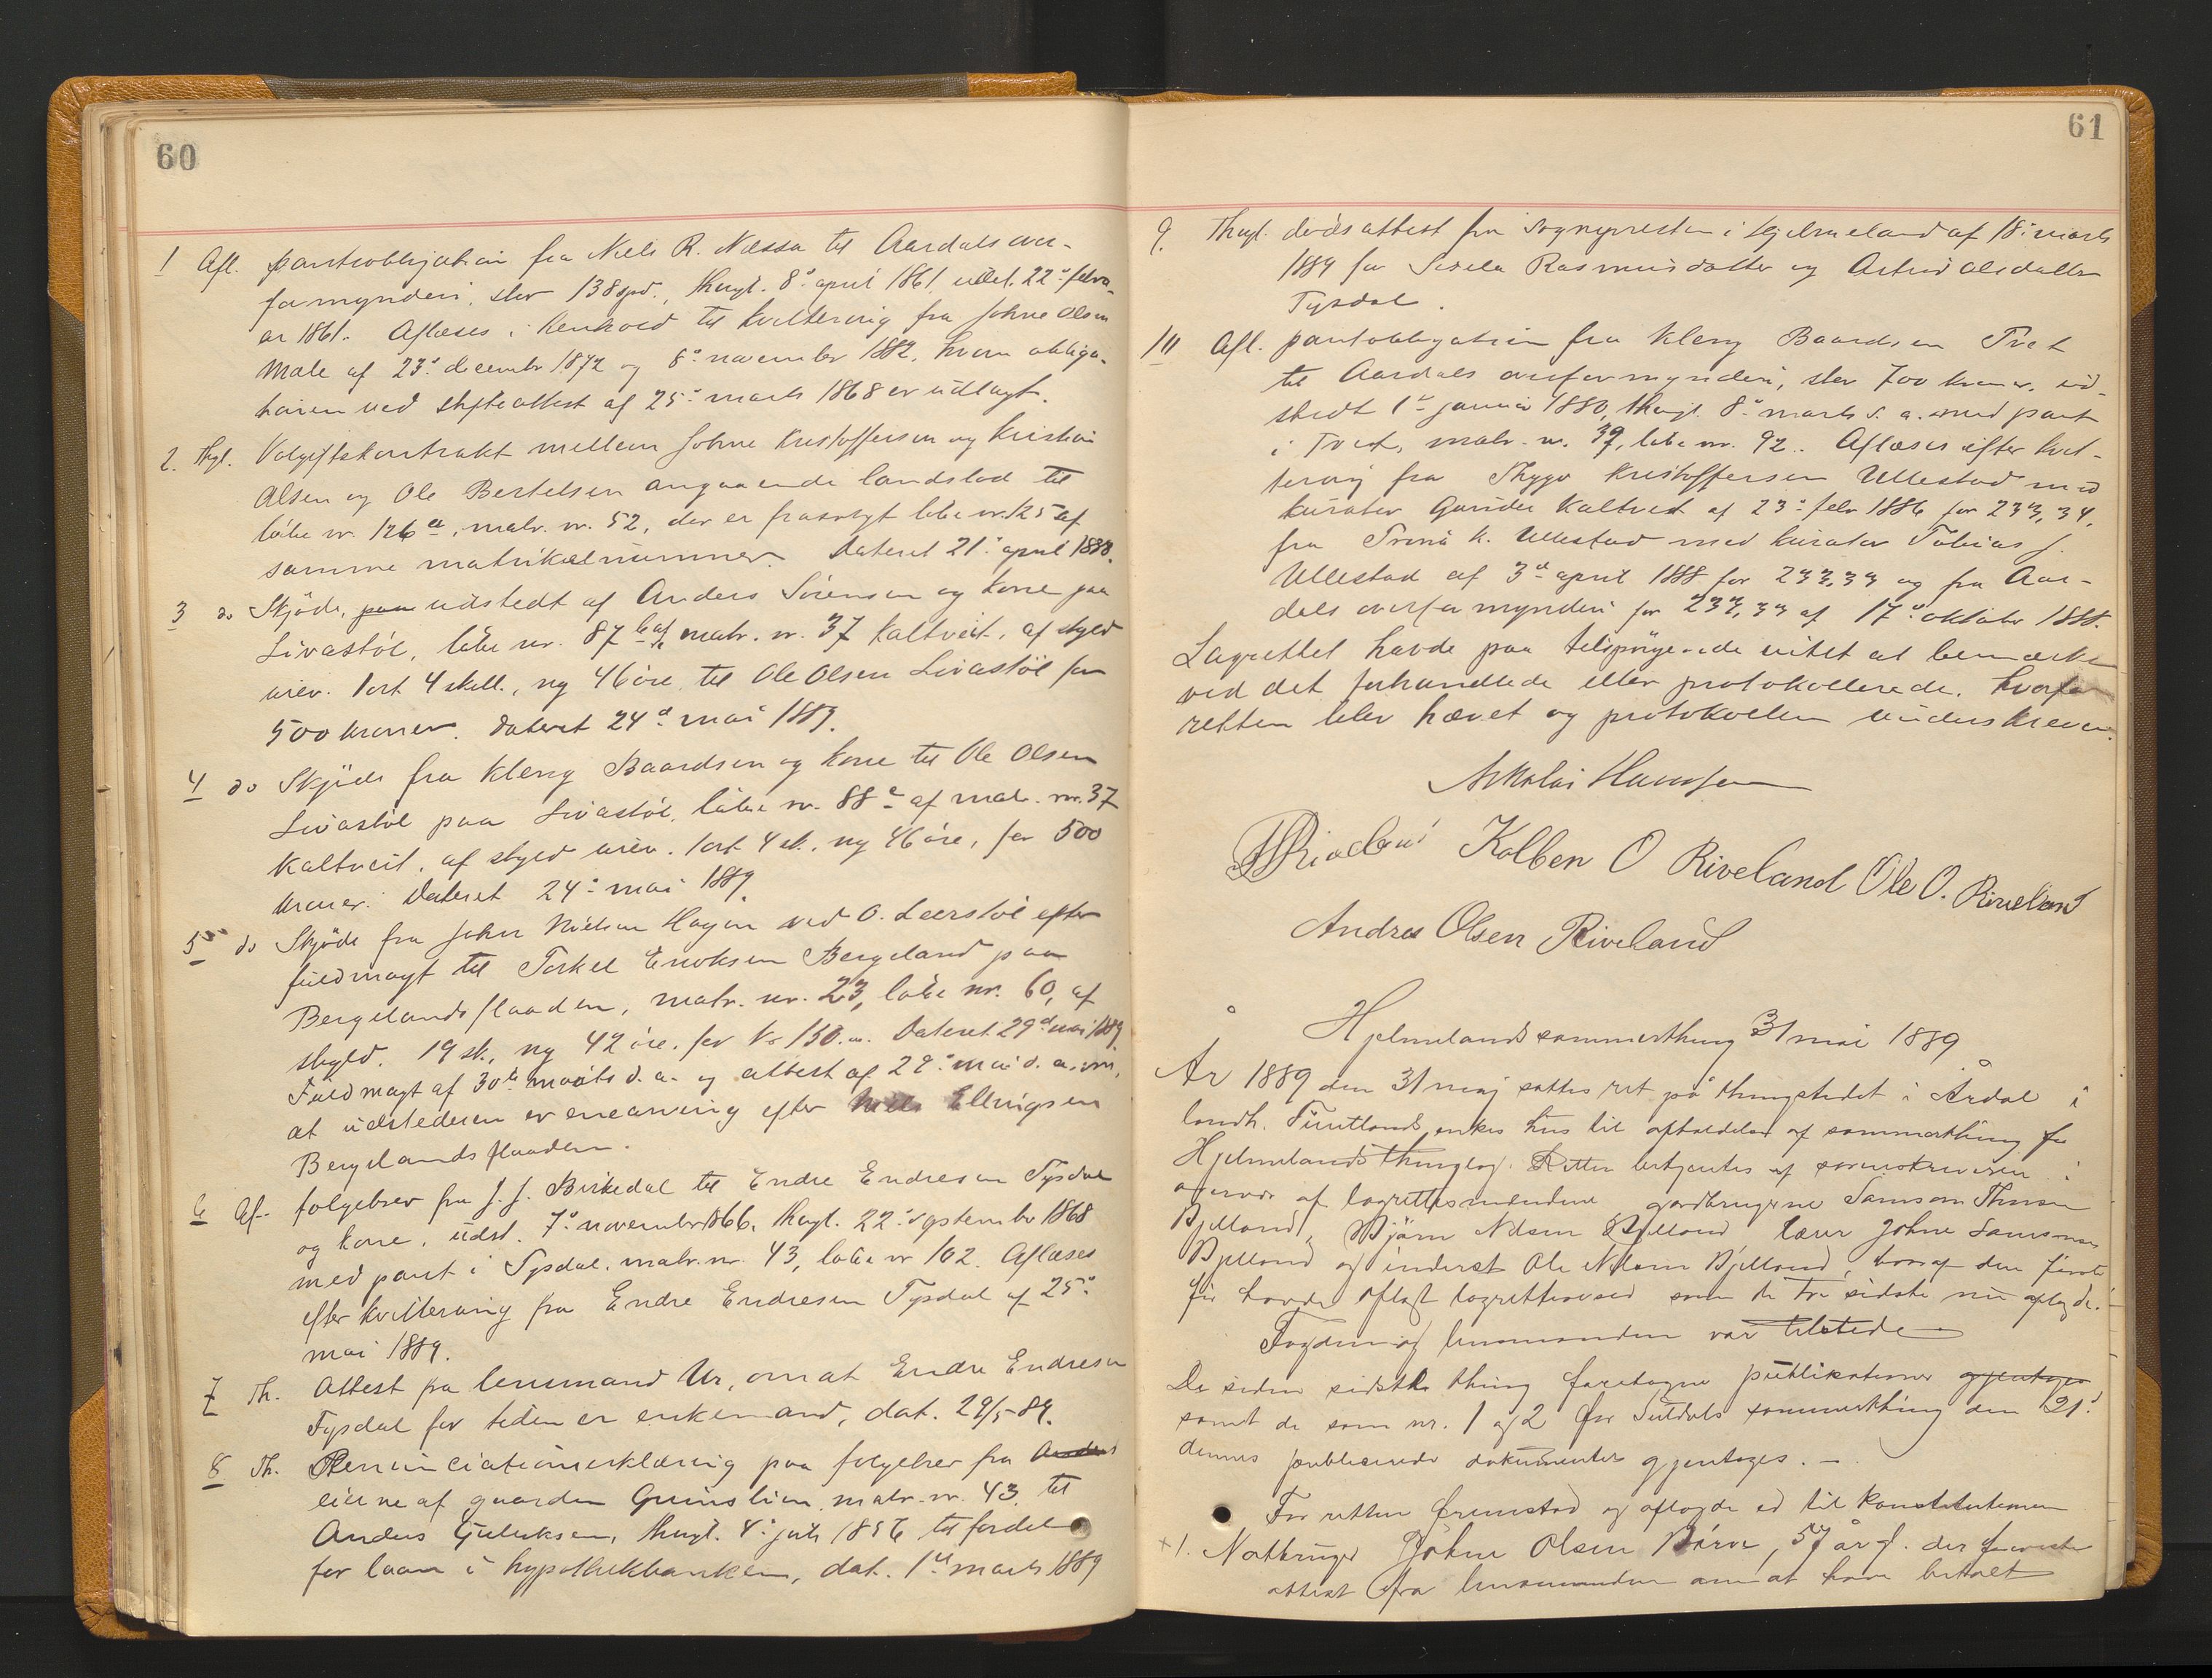 60
1 Afl. pantobligation fra Niels R. Næssa til Aardals over-
formynderi, stor 138 spd., thingl. 8de april 1861, udst. 22de febru-
ar 1861. Aflæses i henhold til kvittering fra Johne Olsen
Mæle af 23de december 1872 og 8de november 1882, hvem obliga-
tionen ved skifteattest af 25de marts 1868 er udlagt.
2. Thgl. Volgiftskontrakt mellem Johne Kristoffersen og Kristian
Olsen og Ole Bertelsen angaaende landslod til
løbe nr. 126 a, matr. nr. 52, der er frasolgt løbe nr. 125 af
samme matrikelnummer. Dateret 21de april 1888.
3 do Skjøde, paa udstedt af Anders Sørensen og kone paa
Livastøl, løbe nr. 87 b af matr. nr. 37 Kaltveit, af skyld
urev. 1 ort 4 skill., ny 46 øre, til Ole Olsen Livastøl for
500 kroner. Dateret 24de mai 1889.
4 do Skjøde fra Kleng Baardsen og kone til Ole Olsen
Livastøl paa Livastøl, løbe nr. 88 c af matr. nr. 37
Kaltveit, af skyld urev. 1 ort 4 sk., ny 46 øre, for 500
kroner. Dateret 24de mai 1889.
5 do Skjøde fra John Nielsen Hagen ved O. Leerstøl efter
fuldmagt til Torkel Eriksen Bergeland paa
Bergelandsflaaden, matr. nr. 23, løbe nr. 60, af
skyld. 19 sk., ny 42 øre, for kr. 150.00. Dateret 29de mai 1889.
Fuldmagt af 30te marts d. a. og attest af 29de mai d. a. om,
at udstederen er enearving efter Niels Ellingsen
Bergelandsflaaden.
6 Af. følgebrev fra J. J. Birkedal til Endre Endresen Tysdal
og kone, udst. 7de november 1866, thngl. 22de september 1868
med pant i Tysdal, matr. nr. 43, løbe nr 102. Aflæses
efter kvittering fra Endre Endresen Tysdal af 25de
mai 1889.
7 Th. Attest fra lensmand Ur, om at Endre Endresen
Tysdal for tiden er enkemand, dat. 29/5 89.
8 Th. Renunciationserklæring paa følgebrev fra Anders
eierne af gaarden Grimslien, matr. nr. 43, til
Anders Gjeluksen, thngl. 4de juli 1856 til fordel
for laan i hypothekbanken, dat. 1ste marts 1889
61
9. Thngl. dødsattest fra sognepresten i Hjelmeland af 18de marts
1889 for Sisela Rasmusdatter og Astrid Olsdatter
Tysdal.
10 Afl. pantobligation fra Kleng Baardsen Tvet
til Aardals overformynderi, stor 700 kroner, ud-
stedt 1ste januar 1880, thngl. 8de marts s. a. med pant
i Tvet, matr. nr. 39, løbe nr. 92. Aflæses efter kvit-
tering fra Thygo Kristoffersen Ullestad med
kurator Gunder Kaltved af 23de febr 1886 for 233,34,
fra Trina K. Ullestad med kurator Tobias J.
Ullestad af 3de april 1888 for 233,33 og fra Aar-
dals overformynderi for 233,33 af 17de oktober 1888.
Lagrettet havde paa tilspørgende intet at bemærke
ved det forhandlede eller protokollerede, hvorfor
retten blev hævet og protokollen underskreven.
Nikolai Hansen
Kolben O Riveland Ole O. Riveland
Andres Olsen Riveland
Hjelmelands sommerthing 31 mai 1889
År 1889 den 31 maj sattes ret på thingstedet i Årdal i
landh. enkes hus til afholdelse af sommerthing for
Hjelmelands thinglag. Retten betjentes af sorenskriveren i
overvær af lagrettesmændene gårdbrugerne Samson
Bjelland, Bjørn Nilsen Bjelland, lærer Johne Samsonsen
Bjelland og inderst Ole Nilsen Bjelland, hvoraf den første
før havde aflagt lagretteseed som de tre sidste nu aflagde.
Fogden og lensmanden var tilstede
De siden sidste thing foretagne publikationer gjentages
samt de som nr. 1 og 2 for Suldals sommerthing den 21de
dennes publicerede dokumenter gjentages. —
For retten fremstod og aflagde ed til konstitutionen
+1. Notbruger Johne Olsen Børve, 57 år gl. der foreviste
attest fra lensmanden om at have betalt